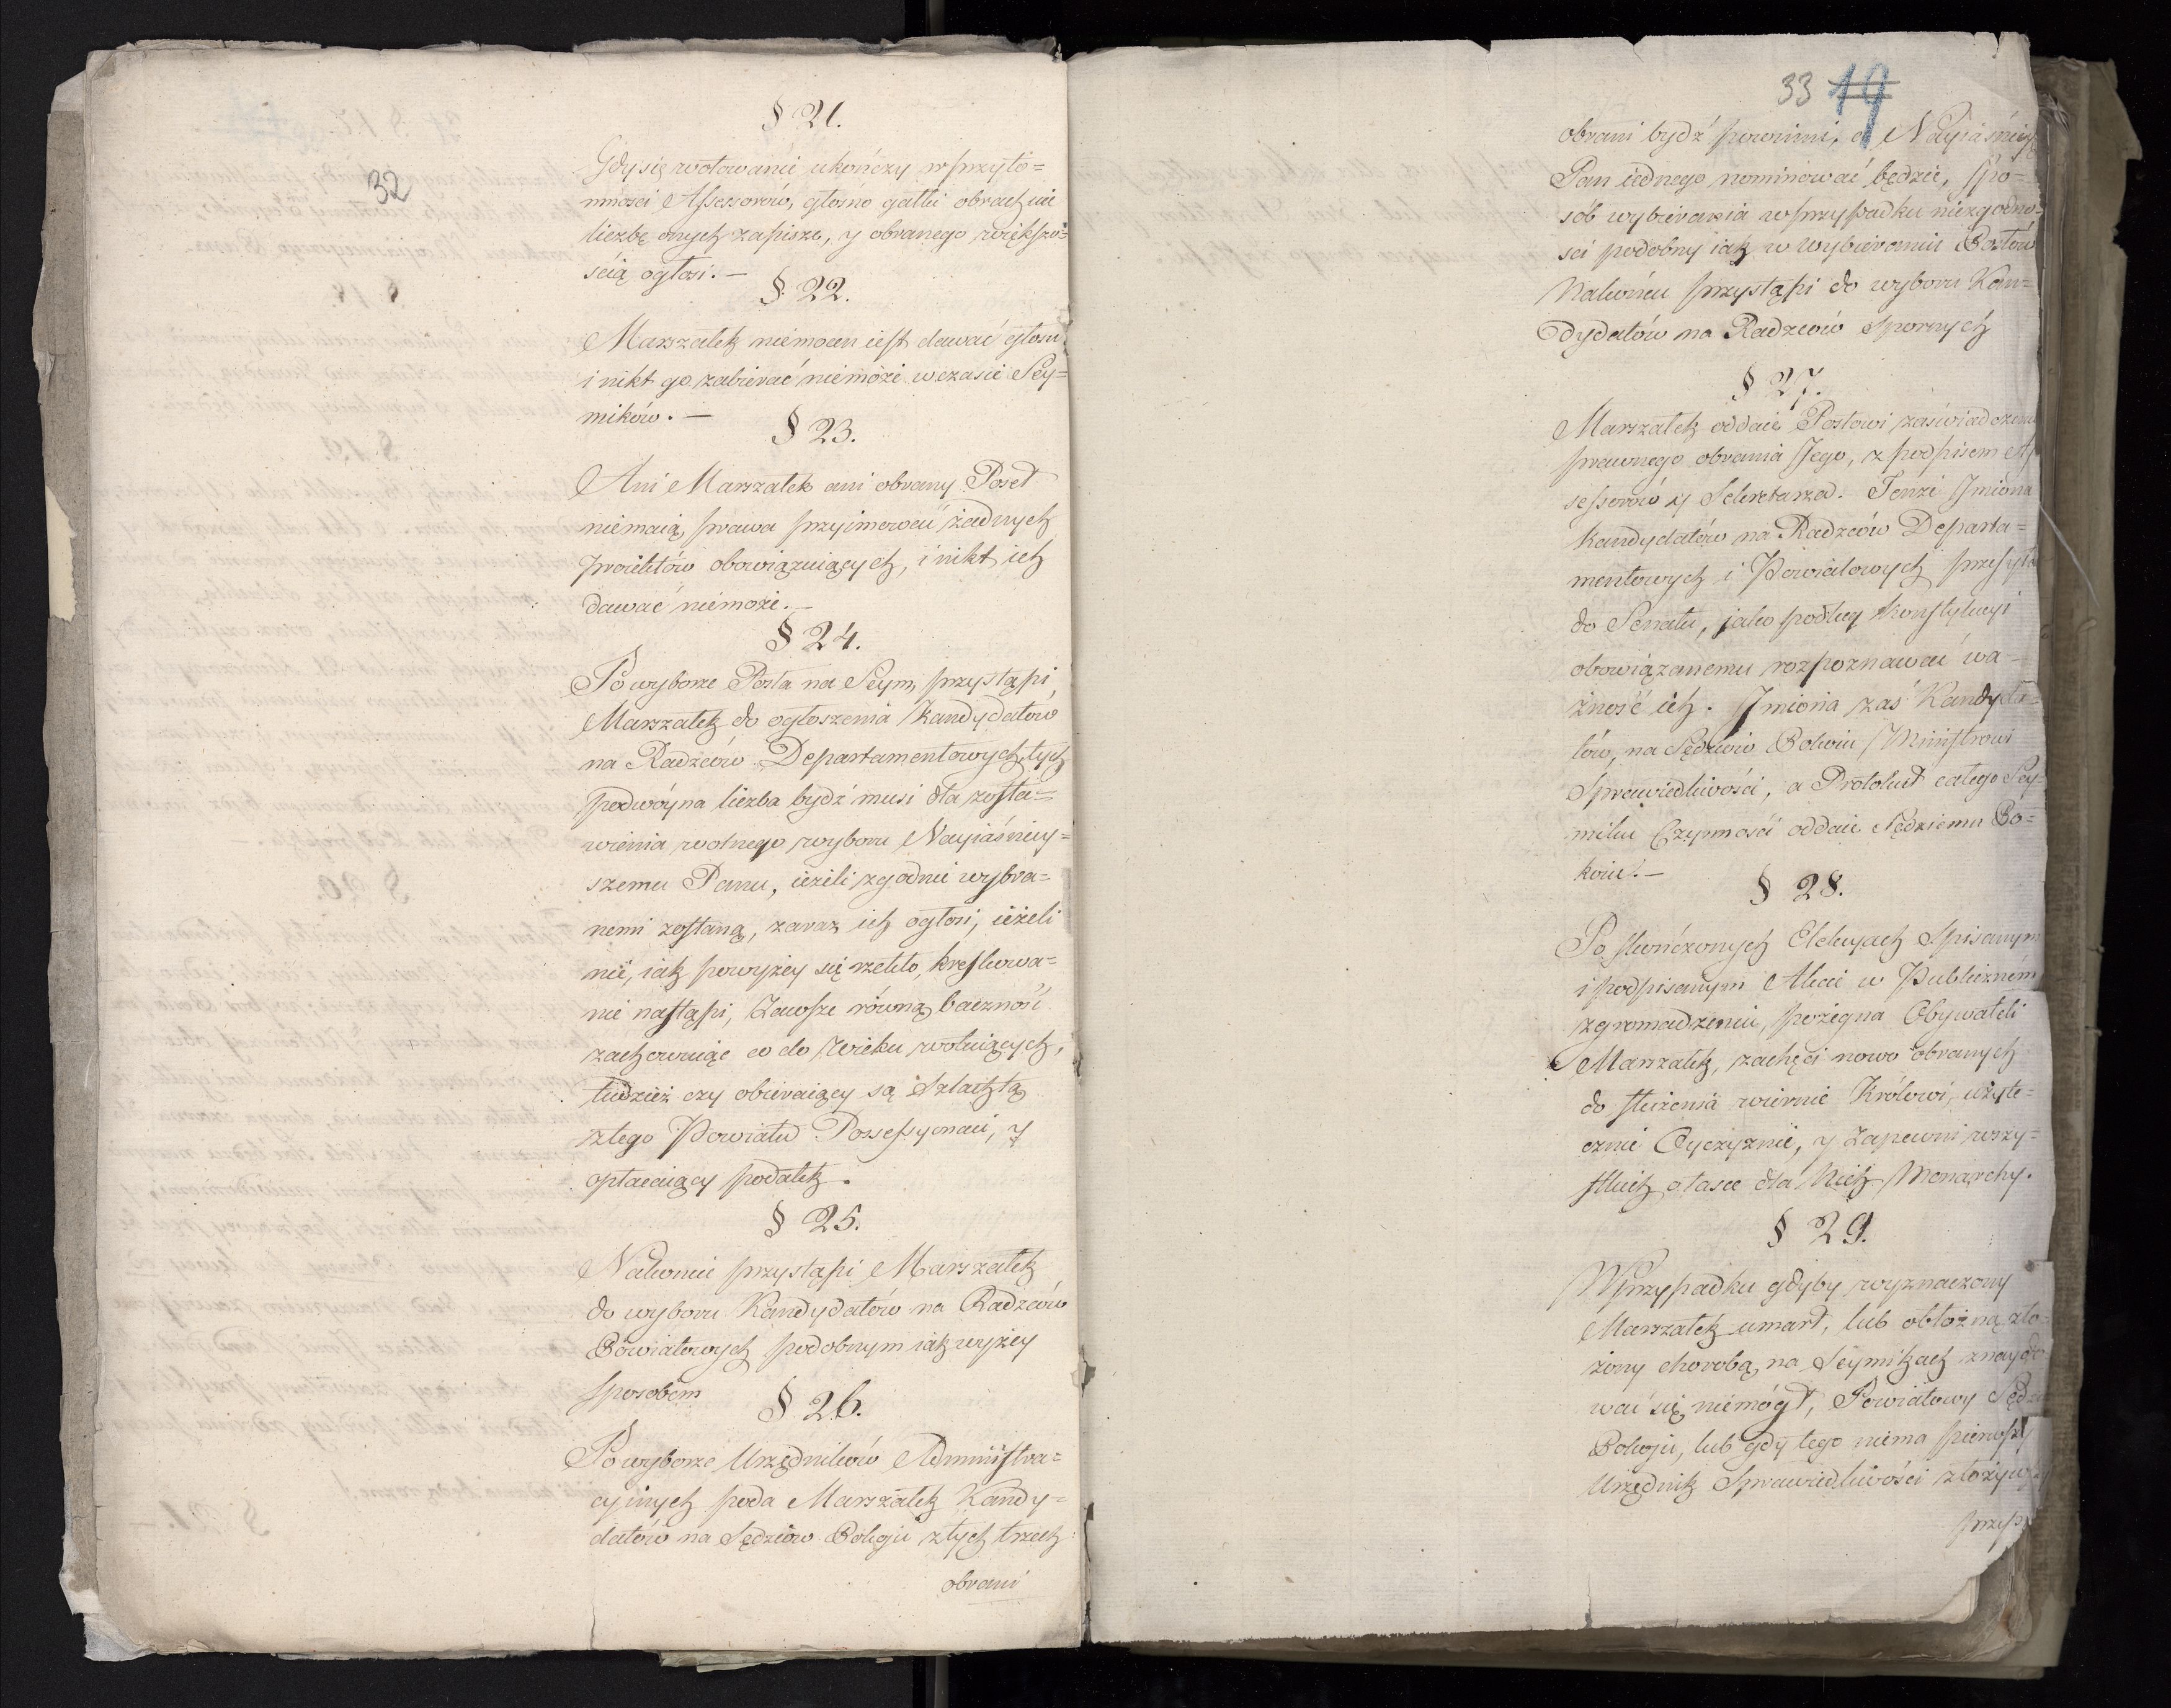 32
§ 21.
Gdy się wotowanie ukończy w przyto=
mności Assessorów, głośno gałki obrachuie
liczbę onych zapisze, y obranego większo=
ścią ogłosi. —
§ 22.
Marszałek niemocen iest dawać głosu
i nikt go zabierać niemoże w czasie Sey=
mików. —
§ 23.
Ani Marszałek ani obrany Poseł
niemaią prawa przyimować żadnych
Proiektów obowiązuiących, i nikt ich
dawać niemoże. —
§ 24.
Po wyborze Posła na Seym, przystąpi
Marszałek do ogłoszenia Kandydatów
na Radzców Departamentowych, tych
podwóyna liczba bydź musi dla zosta=
wienia wolnego wyboru Nayiaśniey=
szemu Panu, ieżeli zgodnie wybra=
nemi zostaną, zaraz ich ogłosi, ieżeli
nie, iak powyżey się rzekło, kreskowa=
nie nastąpi, Zawsze równą baczność
zachowuiąc co do Wieku wotuiących,
tudzież czy obieraiący są Szlachtą
z tego Powiatu Possessyonaci, y
opłacaiący podatek.
§ 25.
Nakoniec przystąpi Marszałek
do wyboru Kandydatów na Radzców
Powiatowych podobnym iak wyżey
sposobem
§ 26.
Po wyborze Urzędników Administra=
cyinych poda Marszałek Kandy=
datów na Sędziów Pokoju z tych trzech
obrani
33 19
obrani bydź powinni, a Nayiaśniey
Pan iednego nominować będzie, spo=
sób wybierania w przypadku niezgodno=
ści podobny iak w wybieraniu Posłów
Nakońcu przystąpi do wyboru Kan=
dydatów na Radzców Spornych
§ 27.
Marszałek oddaie Posłowi zaświadczeni
prawnego obrania Jego, z podpisem As
sessorów y Sekretarza. Tenże Imiona
Kandydatów na Radzców Departa=
mentowych i Powiatowych przesyła
do Senatu, jako podług Konstytucyi
obowiązanemu rozpoznawać wa=
żność ich. Imiona zaś Kandyda=
tów, na Sędziów Pokoiu, Ministrowi
Sprawiedliwości, a Protokuł całego Sey=
miku Czynności oddaie Sędziemu Po=
koiu. —
§ 28.
Po skończonych Elekcyach Spisanym
i podpisanym Akcie w Publicznem
zgromadzeniu, pożegna Obywateli
Marszałek, zachęci nowo obranych
do służenia wiernie Królowi, użyte=
cznie Oyczyznie, y Zapewni wszy=
stkich o łasce dla Nich Monarchy.
§ 29.
W przypadku gdyby wyznaczony
Marszałek umarł, lub obłożną zło=
żony chorobą, na Seymikach znaydo
wać się niemógł, Powiatowy Sędzi
Pokoju, lub gdy tego niema pierwszy
Urzędnik Sprawiedliwości złożywszy
przys